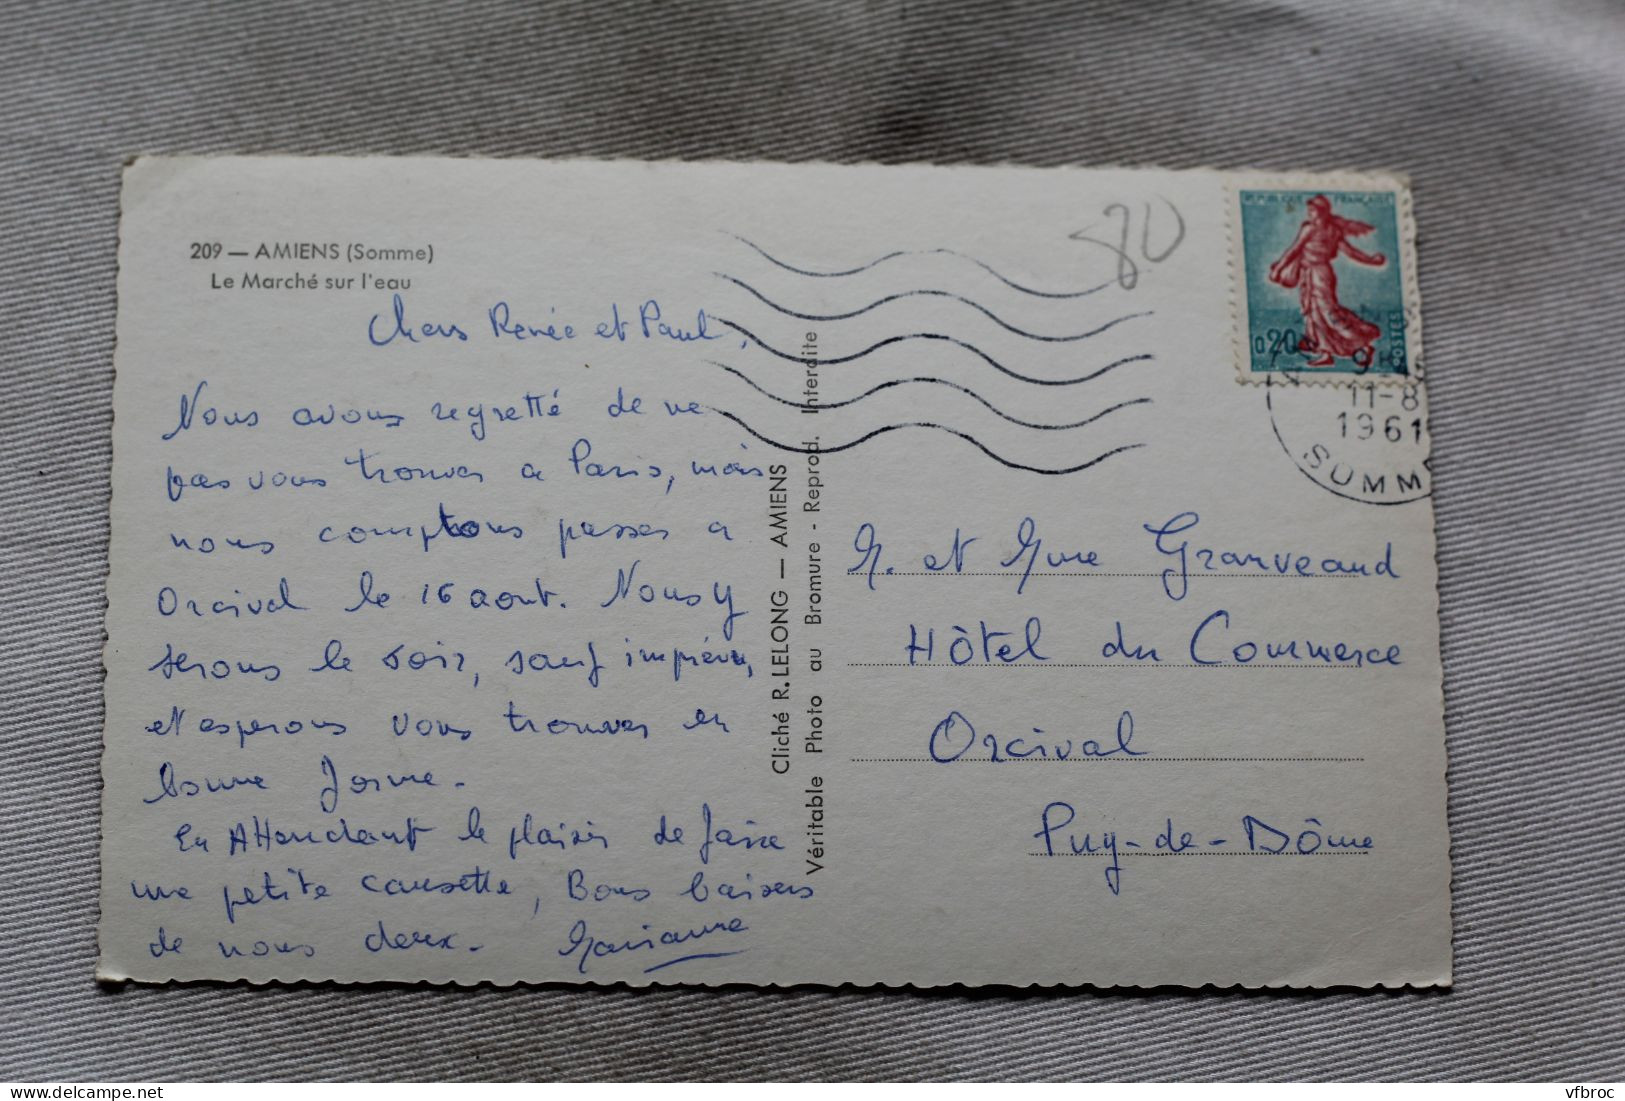 209 — AMIENS (Somme)
Le Marché sur l'eau
Chers Renée et Paul,
Nous avons regretté de ne
pas vous trouver a Paris, mais
nous comptons passer a
Orcival le 16 aout. Nous y
serons le soir, sauf imprévu,
et esperons vous trouver en
bonne forme.
En Attendant le plaisir de faire
une petite causette, Bons baisers
de nous deux. Marianne
Cliché R. LELONG — AMIENS
Véritable Photo au Bromure - Reprod. Interdite
80
REPUBLIQUE FRANÇAISE
0,20
POSTES
9H
11-8
1961
SOMM
M. et Mme Granveaud
Hôtel du Commerce
Orcival
Puy-de-Dôme
Delcampe.net
vfbroc